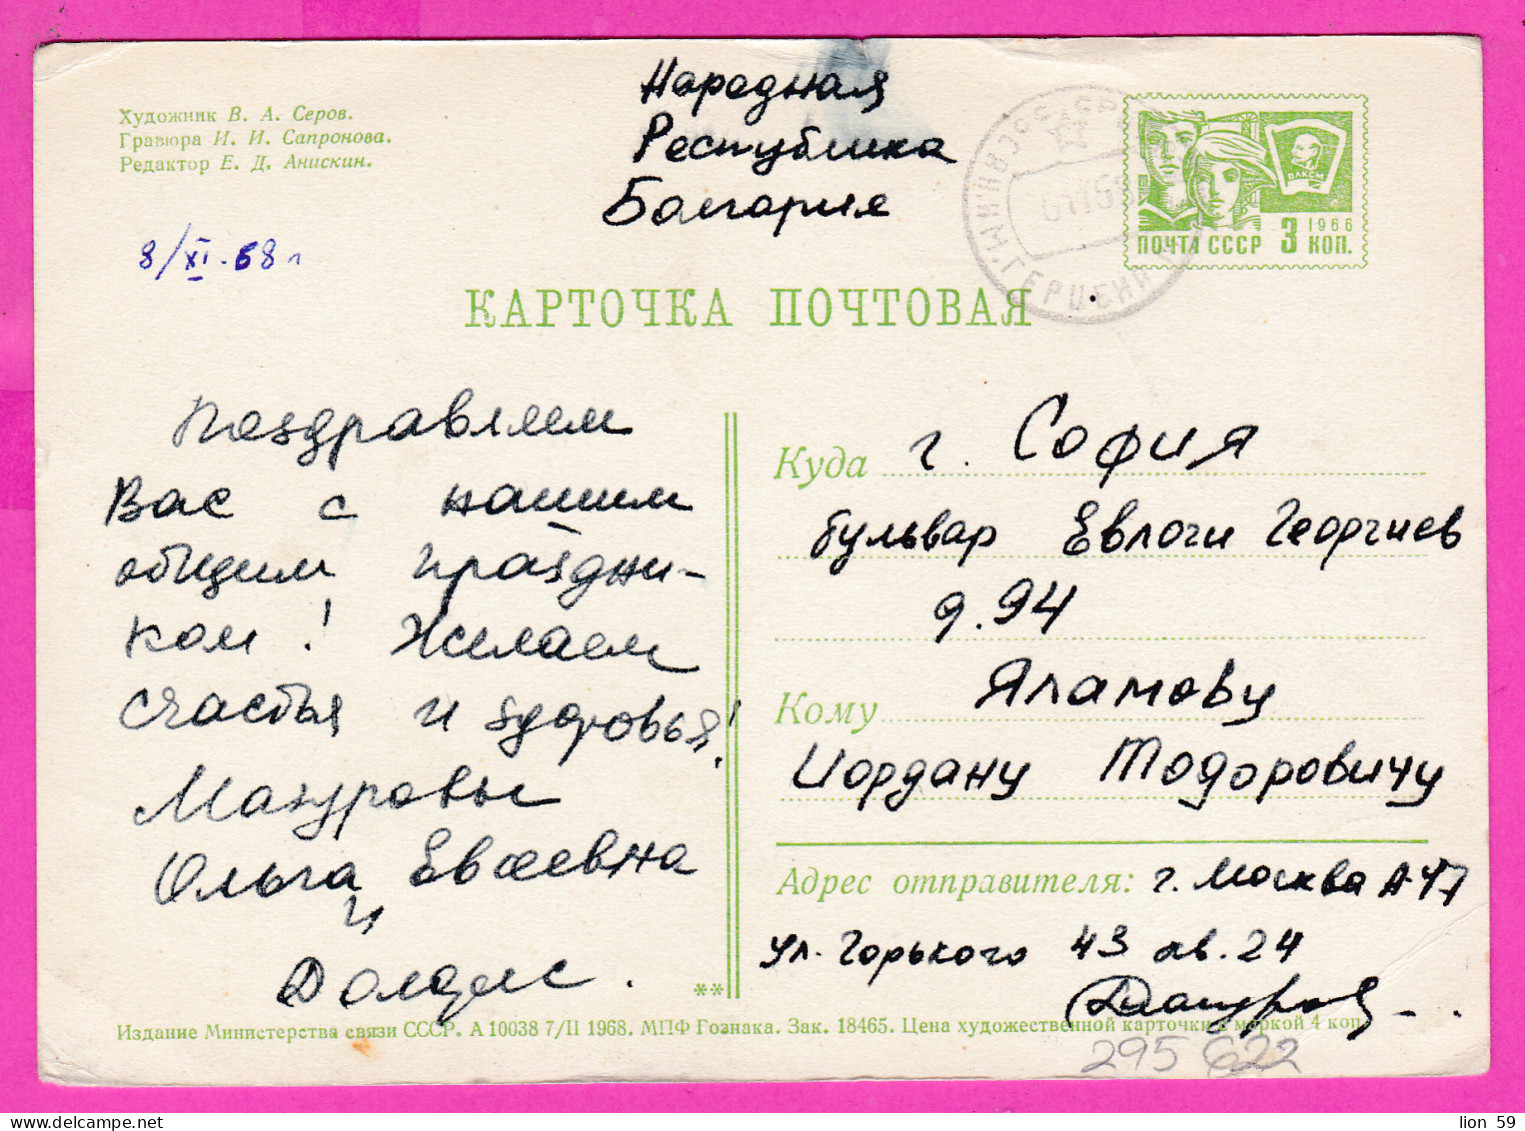 Художник В. А. Серов.
Гравюра И. И. Сапронова.
Редактор Е. Д. Анискин.
Народная
Республика
Болгария
8/XI.68г
ВЛКСМ
1966
ПОЧТА СССР 3 КОП.
КАРТОЧКА ПОЧТОВАЯ
Поздравляем
Вас с нашим
общим праздни-
ком! Желаем
счастья и здоровья!
Мазуровы
Ольга Евсеевна
и
**
Куда г. София
бульвар Евлоги Георгиев
д. 94
Кому Яламову
Иордану Тодоровичу
Адрес отправителя: г. Москва А-47
ул. Горького 43 кв. 24
Издание Министерства связи СССР. А 10038 7/II 1968. МПФ Гознака. Зак. 18465. Цена художественной карточки с маркой 4 коп.
295 622
lion 59